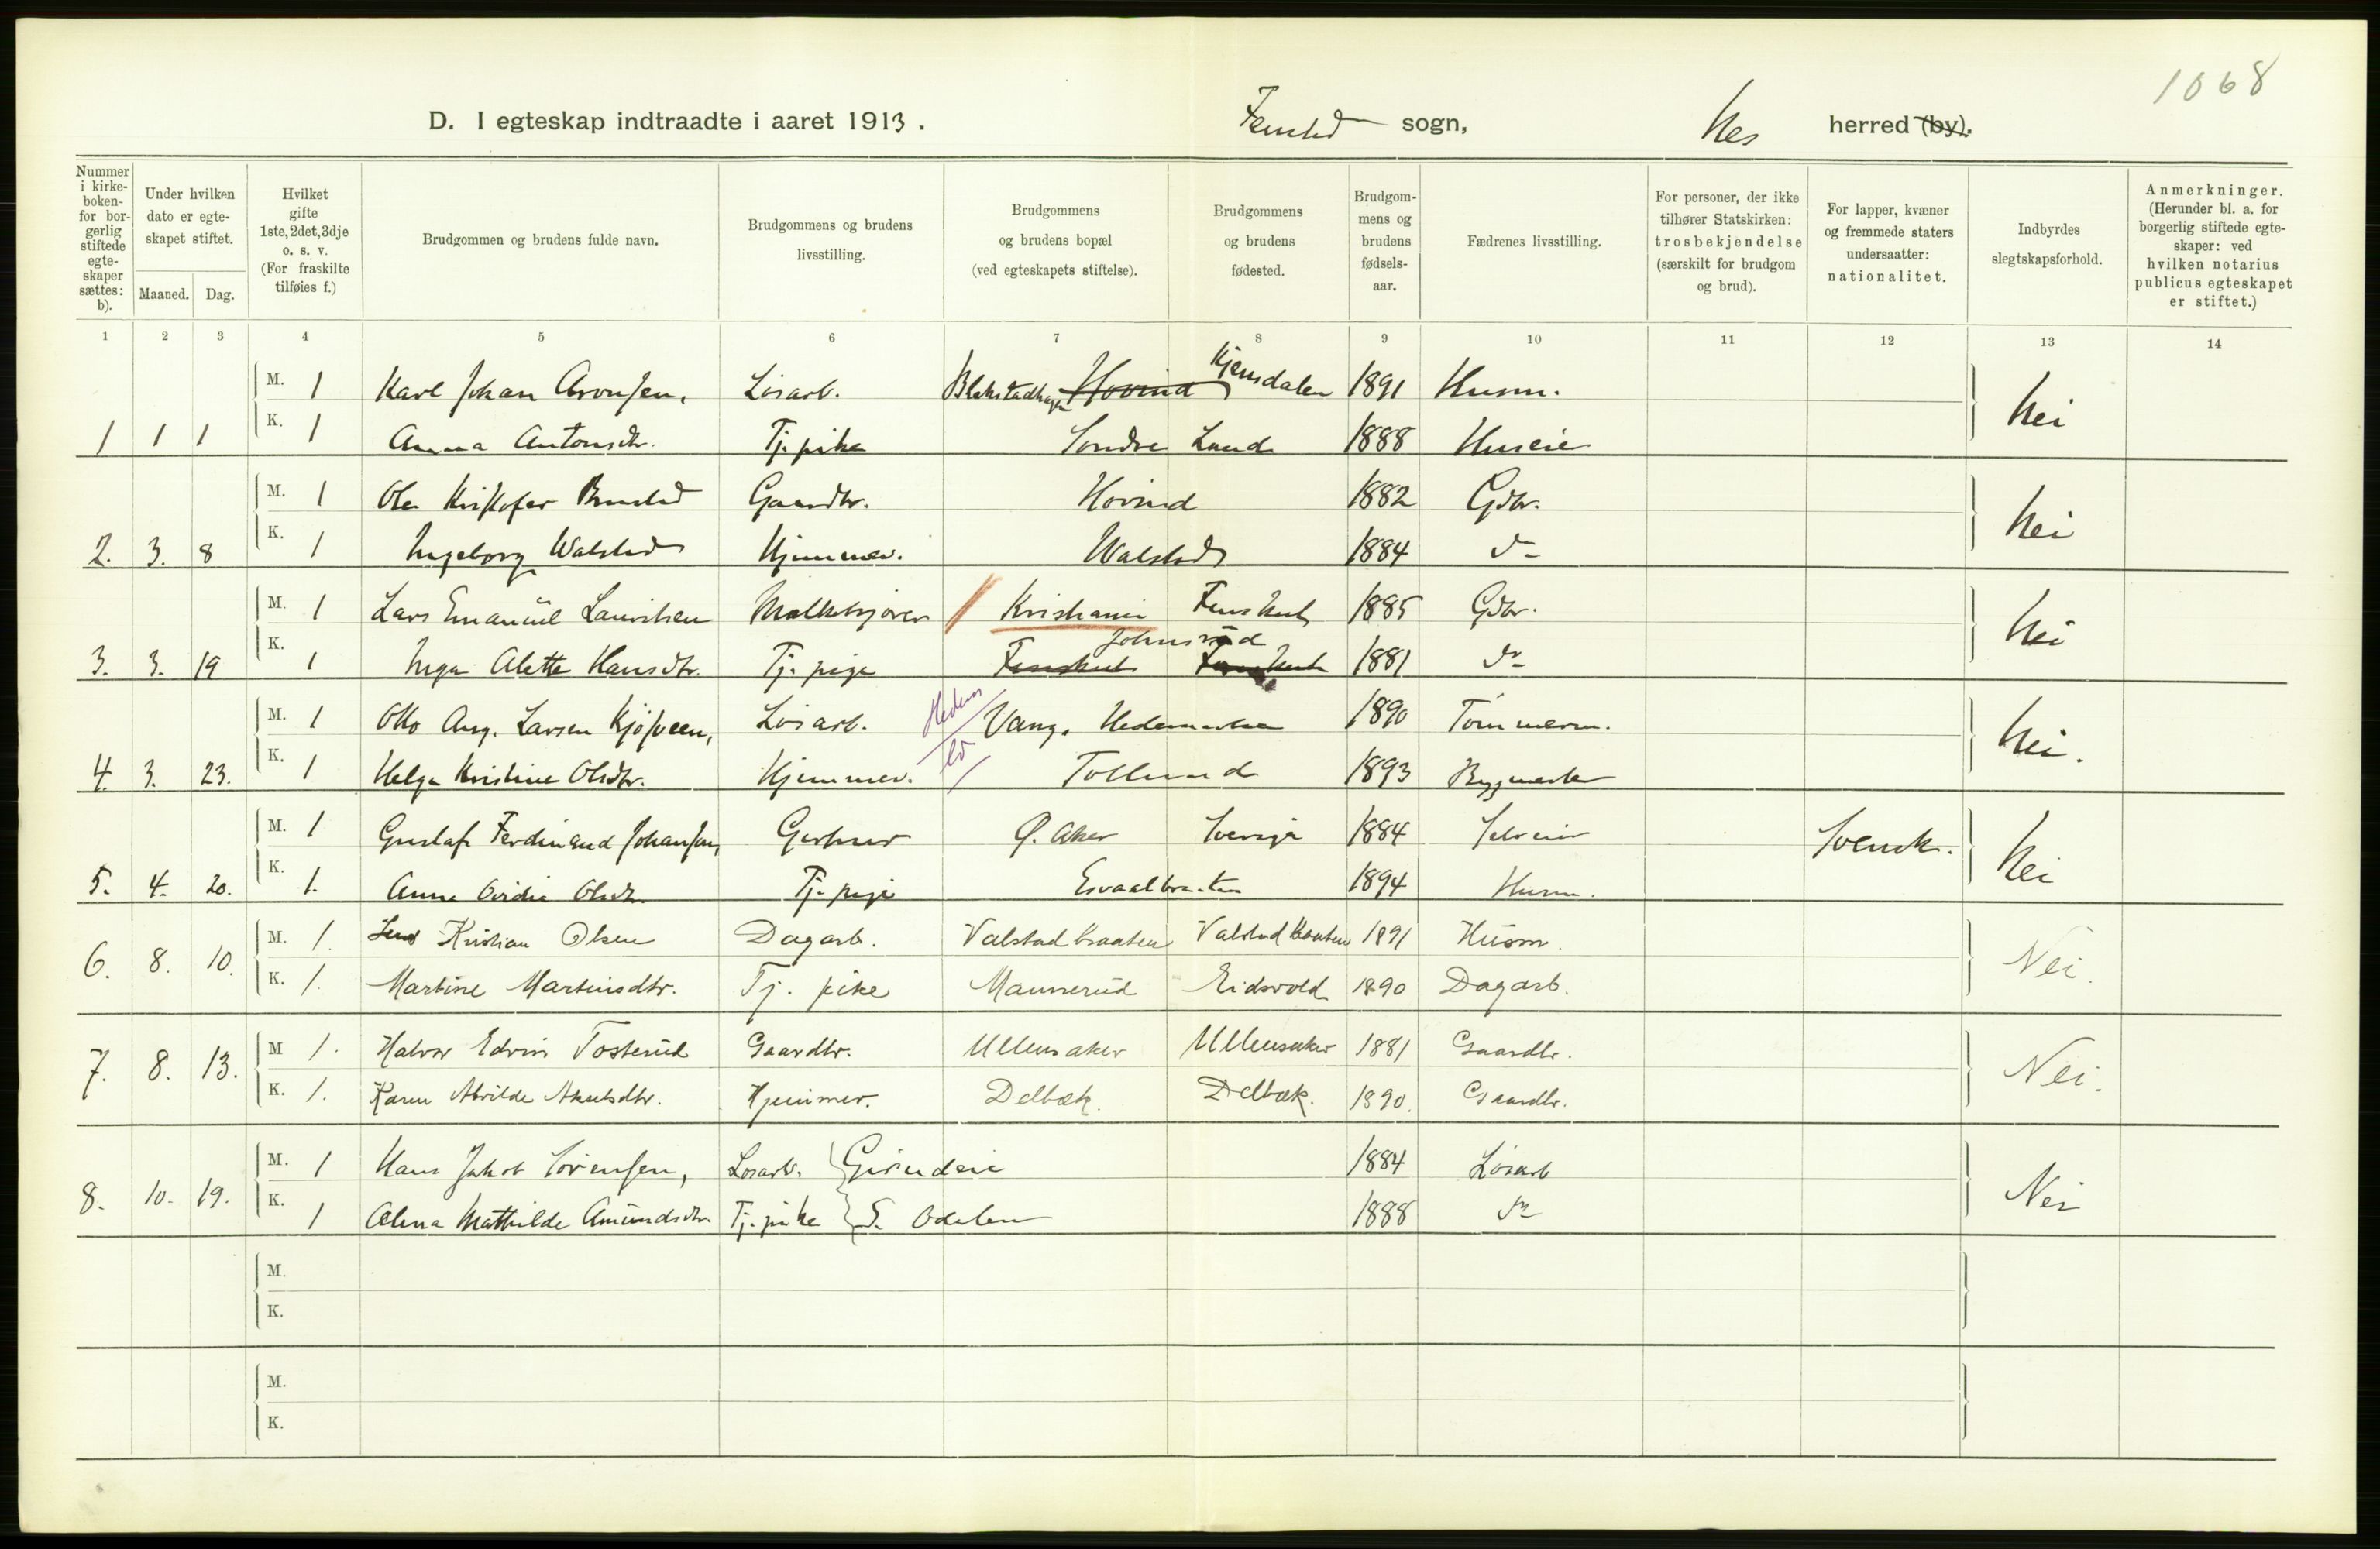 1068
D. I egteskap indtraadte i aaret 1913. Fenstad sogn, Nes herred (by).
Nummer i kirkeboken- for borgerlig stiftede egteskaper sættes: b).
Under hvilken dato er egteskapet stiftet.
Maaned. Dag.
Hvilket gifte 1ste, 2det, 3dje o. s. v. (For fraskilte tilføies f.)
Brudgommen og brudens fulde navn.
Brudgommens og brudens livsstilling.
Brudgommens og brudens bopæl (ved egteskapets stiftelse).
Brudgommens og brudens fødested.
Brudgommens og brudens fødselsaar.
Fædrenes livsstilling.
For personer, der ikke tilhører Statskirken: trosbekjendelse (særskilt for brudgom og brud).
For lapper, kvæner og fremmede staters undersaatter: nationalitet.
Indbyrdes slegtskapsforhold.
Anmerkninger. (Herunder bl. a. for borgerlig stiftede egteskaper: ved hvilken notarius publicus egteskapet er stiftet.)
1 2 3 4 5 6 7 8 9 10 11 12 13 14
M. 1 Karl Johan Aronsen, Løsarb. Blekstadhagen Hovind Kjensdalen 1891 Husm.
1 1 1 K. 1 Anna Antonsdtr. Tj. pike Søndre Lund 1888 Huseie Nei
M. 1 Ole Kristofer Gaardbr. Hovind 1882 Gdbr.
2. 3. 8 K. 1 Ingeborg Walstad Hjemmev. Walstad 1884 do Nei
M. 1 Lars Emanuel Lauritsen Melkekjører Kristiania 1885 Gdbr.
3. 3. 19 K. 1 Inga Alette Hansdtr. Tj. pige Johnsrud 1881 do Nei
M. 1 Otto Aug. Larsen Løsarb. Hedem Vang. Hedemarken 1890 Tømmerm.
4. 3. 23. K. 1 Helga Kristine Olsdtr. Hjemmev. Tollund 1893 Bygmester Nei.
M. 1 Gustaf Ferdinand Johansen, Ø. Aker Sverige 1884 Selveier Svensk.
5. 4. 20. K. 1. Anna Ovidia Olsdtr. Tj. pige Esvaalbraaten 1894 Husm. Nei
M. 1. Kristian Olsen Dagarb. Valstadbraaten Valstadbraaten 1891 Husm.
6. 8. 10. K. 1. Martine Martinsdtr. Tj. pike Mannerud Eidsvold 1890 Dagarb. Nei.
M 1. Halvor Edvin Tosterud Gaardbr. Ullensaker Ullensaker 1881 Gaardbr.
7. 8. 13. K. 1. Karen Alvilde Hjemmev. Delbæk. Delbæk. 1890. Gaardbr. Nei.
M. 1 Hans Jakob Sørensen, Løsarb. Grindeie 1884 Løsarb
8. 10. 19. K. 1 Olena Mathilde Amundsdtr. Tj. pike S. Odalen 1888 do Nei
M.
K.
M.
K.